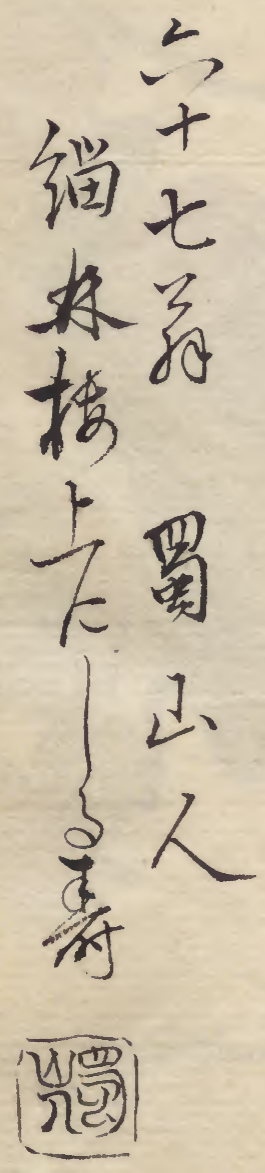 六十七翁　蜀山人
緇林楼上にしるす
蜀山人